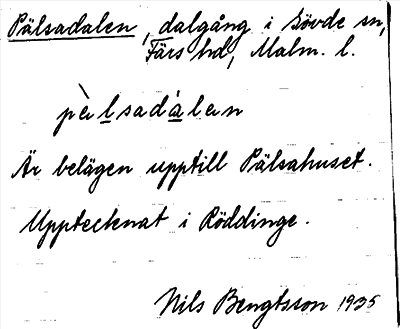 Pälsadalen, dalgång i Sövde sn,
Färs hd, Malm. l.
pèlsadàlen
Är belägen upptill Pälsahuset.
Upptecknat i Röddinge.
Nils Bengtsson 1935